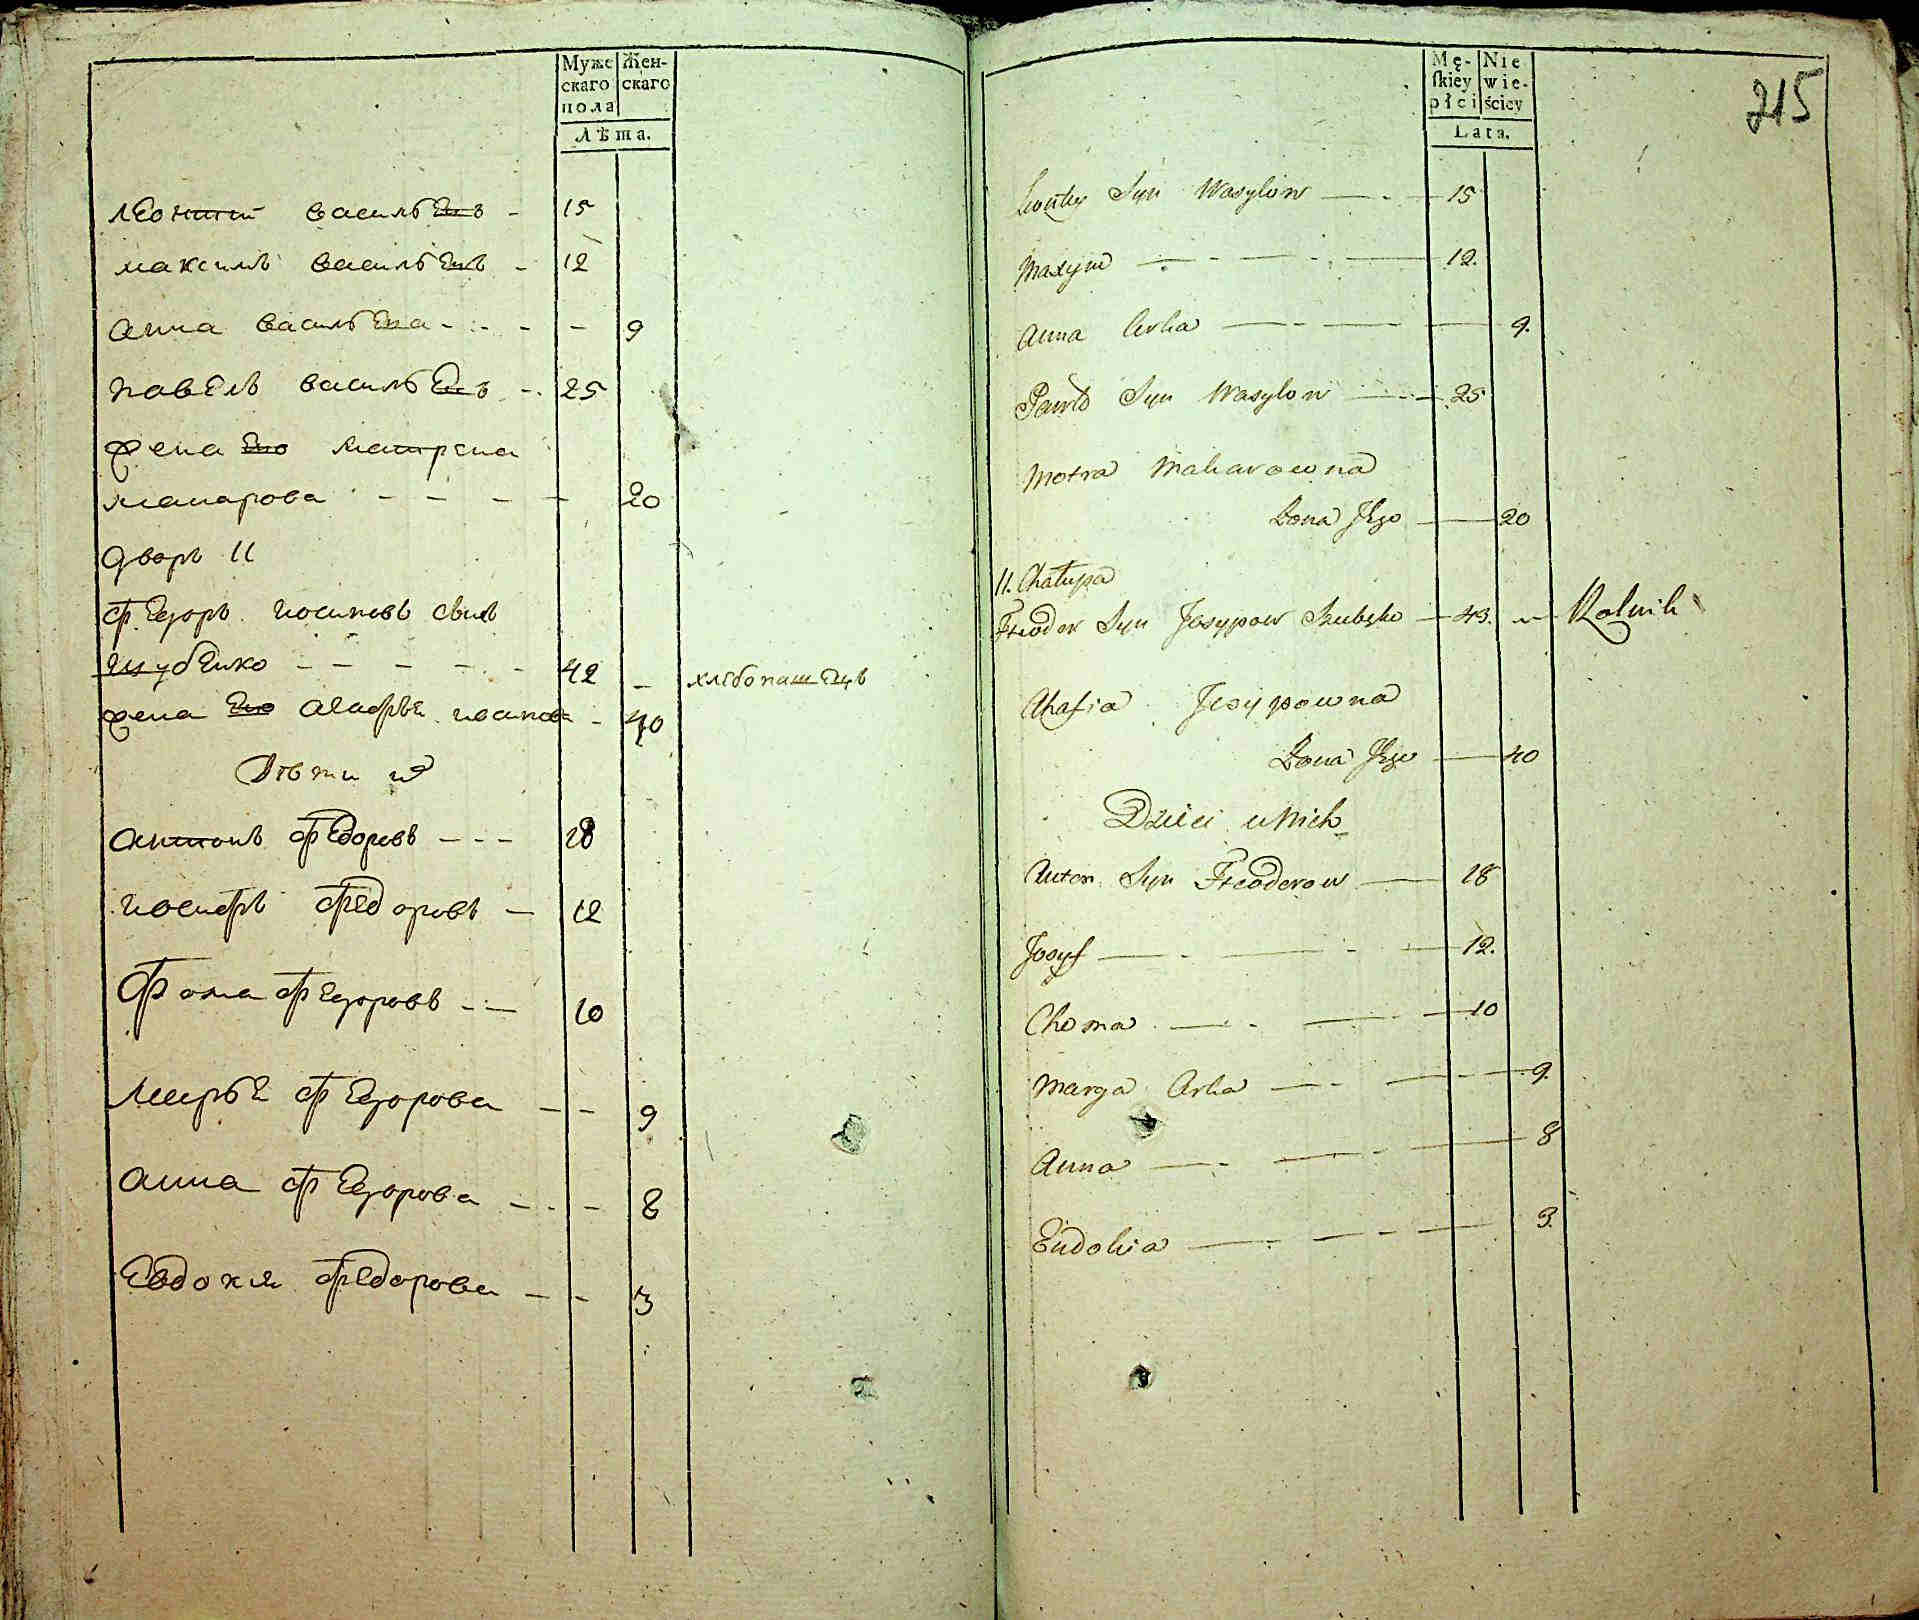 Муже скаго пола
Женскаго
Лѣта.
Леонтій васильевъ - 15
максимъ васильевъ - 12
анна васильева - - - - 9
павелъ васильевъ - 25
жена его матрена
макарова - - - - 20
дворъ 11
Федоръ иосиповъ сынъ
шубенко - - - - - 42 - хлебопашецъ
жена его агафья иосипова - 40
Дѣти их
антонъ федоровъ - - - 18
иосифъ федоровъ - 12
Фома федоровъ - - 10
марья федорова - - 9
анна федорова - - - 8
Евдокия федорова - - 3
215
Męskiey płci
Niewieściey
Lata.
Syn Wasylow - - 15
Maxym - - - - 12.
Anna Corka - - - - 9.
Pawło Syn Wasylow - - 25
Motra Makarowna
Żona Jego - 20
11. Chałupa
Fteodor Syn Josypow Szubenko - 43. - Rolnik
Ahafia Josypowna
Żona Jego - 40
Dzieci u Nich
Anton Syn Fteodorow - 18
Josyf - - - - 12.
Choma - - - - 10
Marya Corka - - - - 9.
Anna - - - - 8
Eudokia - - - - 3.